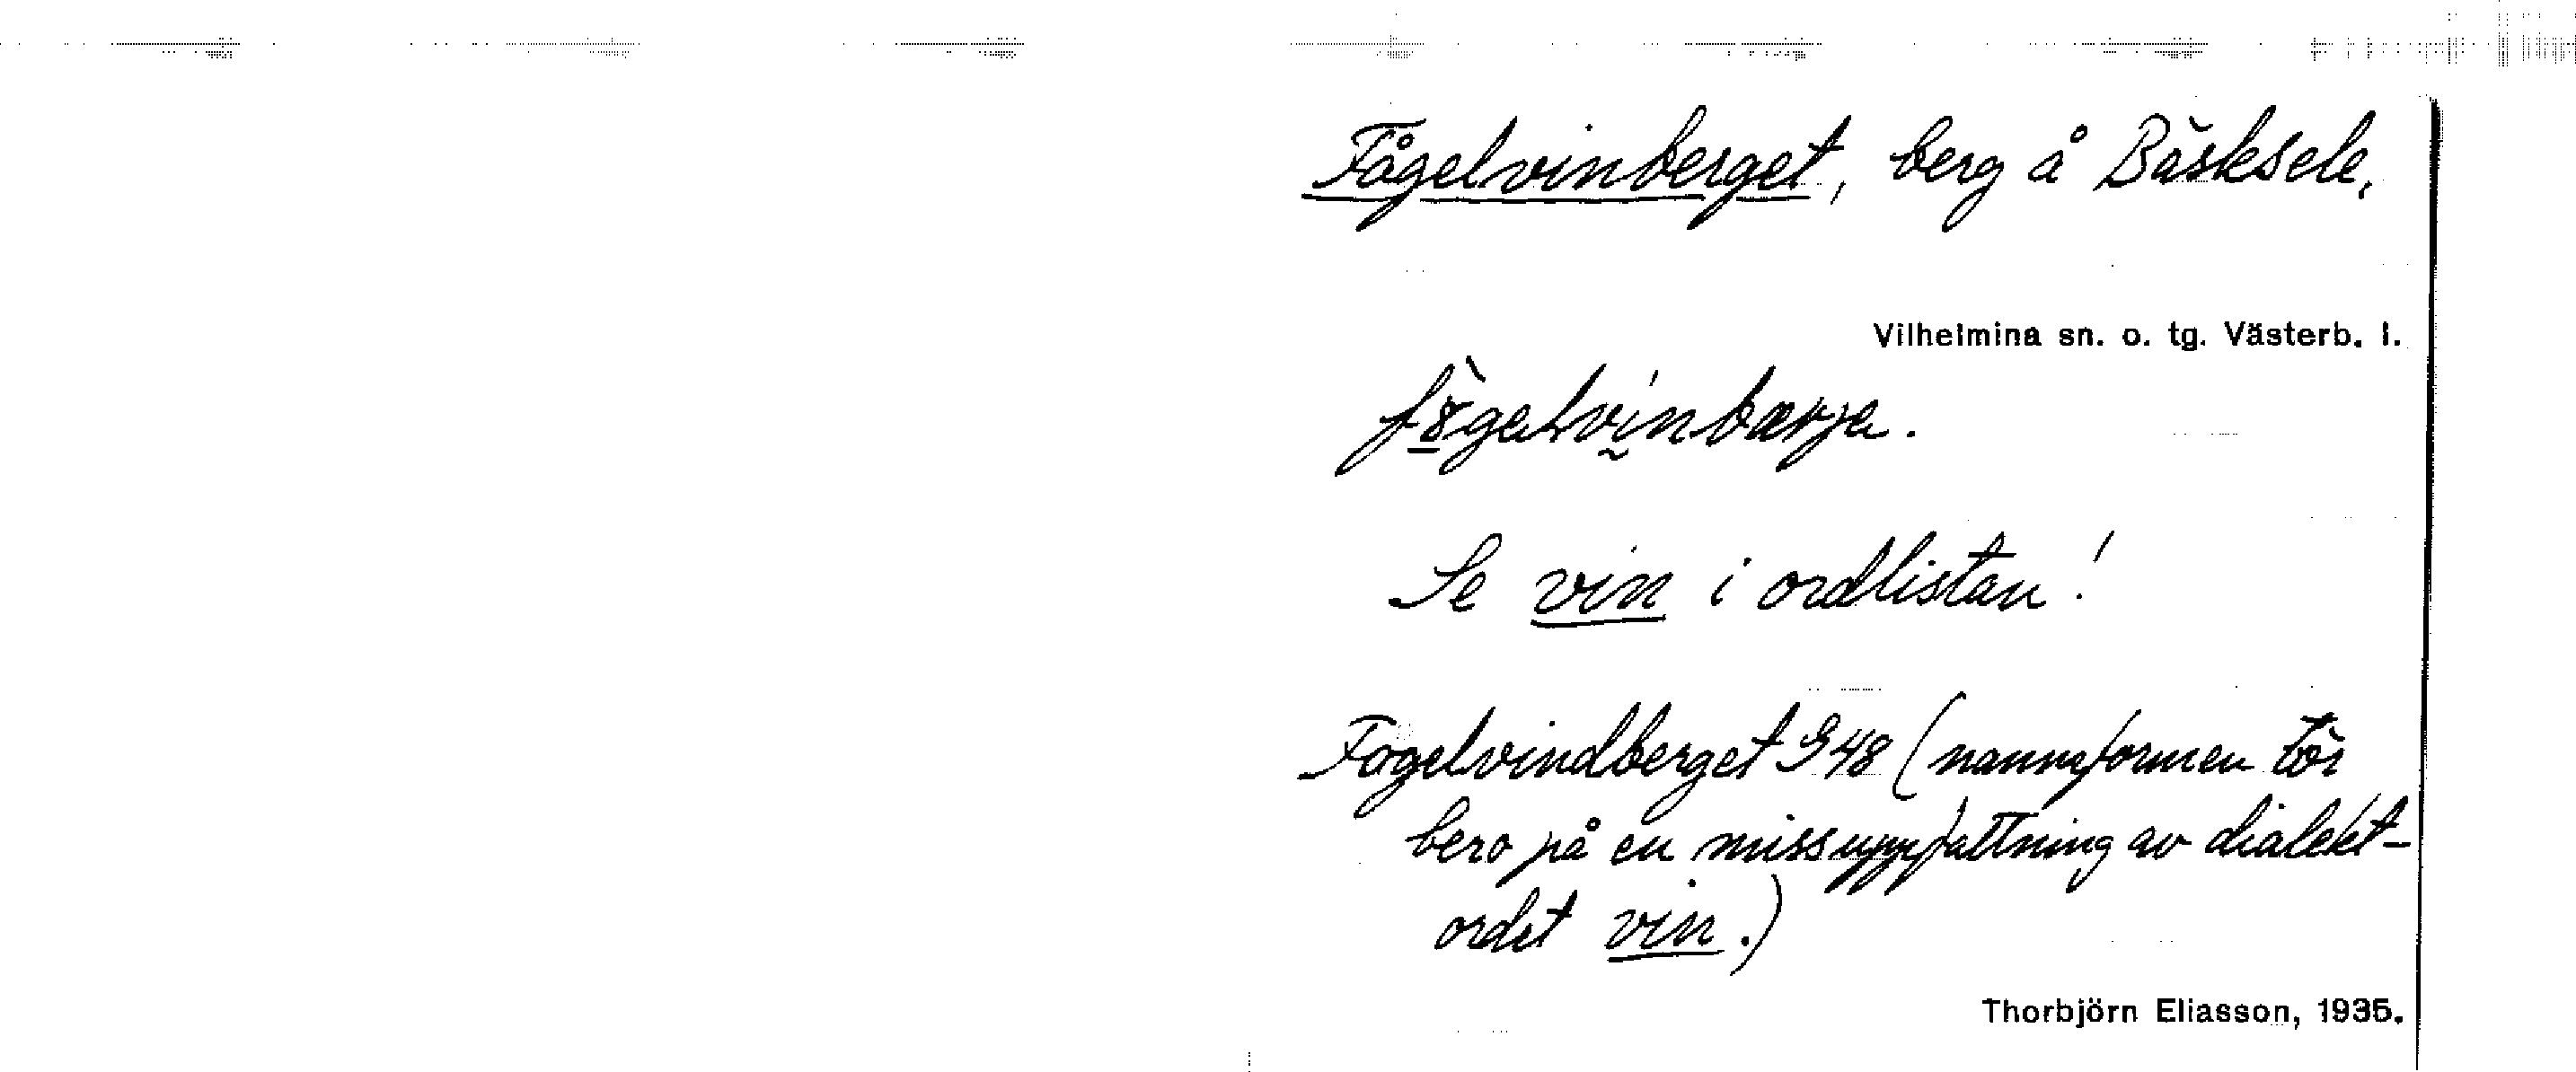 Fågelvinberget, berg å Bäsksele,
Vilhelmina sn. o. tg. Västerb. l.
Se vin i ordlistan!
Fågelvindberget G 48 (namnformen tör
bero på en missuppfattning av dialekt-
ordet vin.)
Thorbjörn Eliasson, 1935.